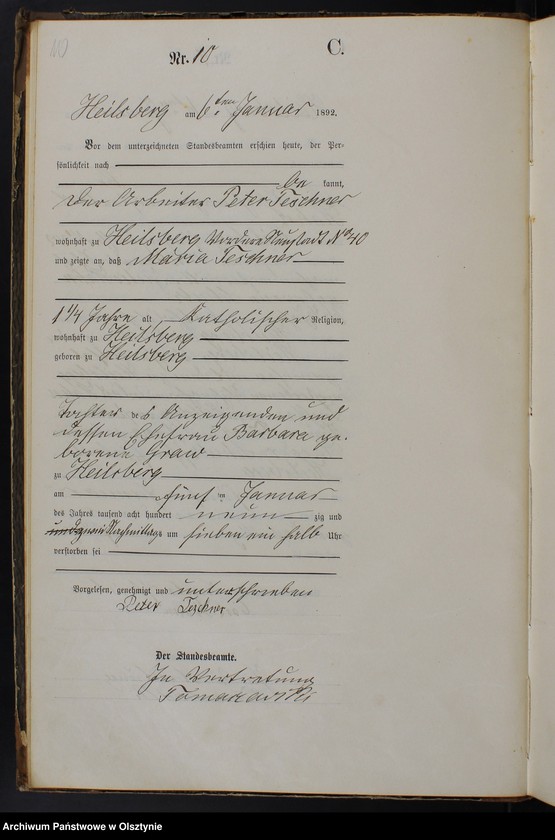 10
Nr. 10 C.
Heilsberg am 6ten Januar 1892.
Vor dem unterzeichneten Standesbeamten erschien heute, der Per-
sönlichkeit nach
be kannt,
Der Arbeiter Peter Teschner
wohnhaft zu Heilsberg Vordere Neustadt No 40
und zeigte an, daß Maria Teschner
1 1/4 Jahre alt, Katholischer Religion,
wohnhaft zu Heilsberg
geboren zu Heilsberg
Tochter des Anzeigenden und
dessen Ehefrau Barbara ge-
borene Graw
zu Heilsberg
am fünften Januar
des Jahres tausend acht hundert neun zig und
zwei Nachmittags um sieben ein halb Uhr
verstorben sei
Vorgelesen, genehmigt und unterschrieben
Peter Teschner
Der Standesbeamte.
In Vertretung
Archiwum Państwowe w Olsztynie